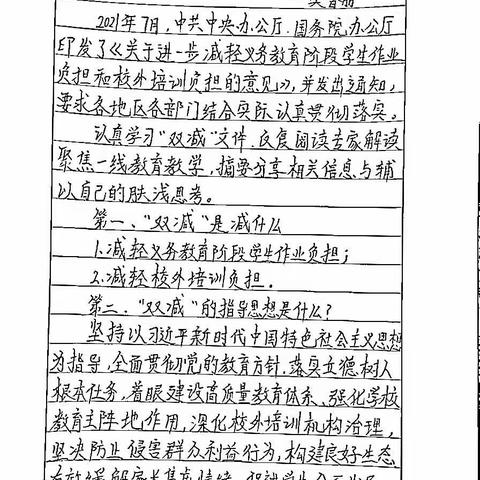 2021年7月,中共中央办公厅、国务院办公厅
印发了《关于进一步减轻义务教育阶段学生作业
负担和校外培训负担的意见》,并发出通知,
要求各地区各部门结合实际认真贯彻落实。
认真学习"双减"文件、反复阅读专家解读
聚焦一线教育教学,摘要分享相关信息与辅
以自己的肤浅思考。
第一、"双减"是减什么
1.减轻义务教育阶段学生作业负担;
2.减轻校外培训负担.
第二."双减"的指导思想是什么?
坚持以习近平新时代中国特色社会主义思想
为指导,全面贯彻党的教育方针,落实立德树人
根本任务,着眼建设高质量教育体系、强化学校
教育主阵地作用,深化校外培训机构治理,
坚决防止侵害群众利益行为,构建良好生态
有效缓解家长焦虑情绪